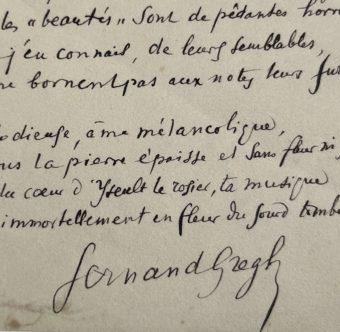 les "beautés" sont de pédantes
j'en connais, de leurs semblables,
ne bornent pas aux notes leurs
dieuse, âme mélancolique,
us la pierre épaisse et sans fleur ni
du cœur d'Yseult le rosier, ta musique
immortellement en fleur du sourd tombe
Fernand Gregh